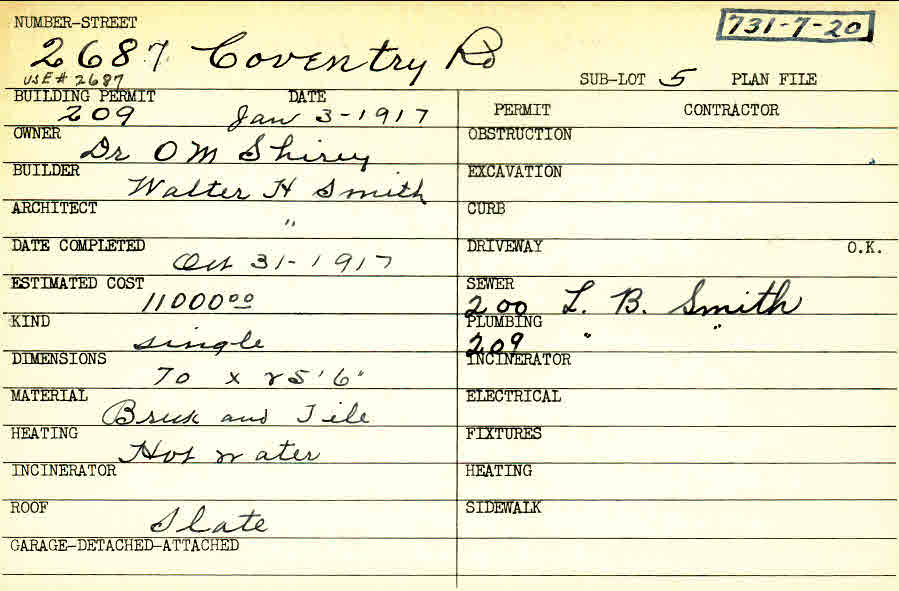 NUMBER-STREET
731-7-20
2687 Coventry Rd
USE # 2687
SUB-LOT 5 PLAN FILE
BUILDING PERMIT DATE
209 Jan 3-1917
PERMIT CONTRACTOR
OWNER
Dr O M Shirey
BUILDER
Walter H Smith
ARCHITECT
"
DATE COMPLETED
Oct 31-1917
ESTIMATED COST
11000 00
KIND
single
DIMENSIONS
70 x 25'6"
MATERIAL
Brick and Tile
HEATING
Hot water
INCINERATOR
ROOF
Slate
GARAGE-DETACHED-ATTACHED
OBSTRUCTION
EXCAVATION
CURB
DRIVEWAY O.K.
SEWER
200 L. B. Smith
PLUMBING
209 " "
INCINERATOR
ELECTRICAL
FIXTURES
HEATING
SIDEWALK